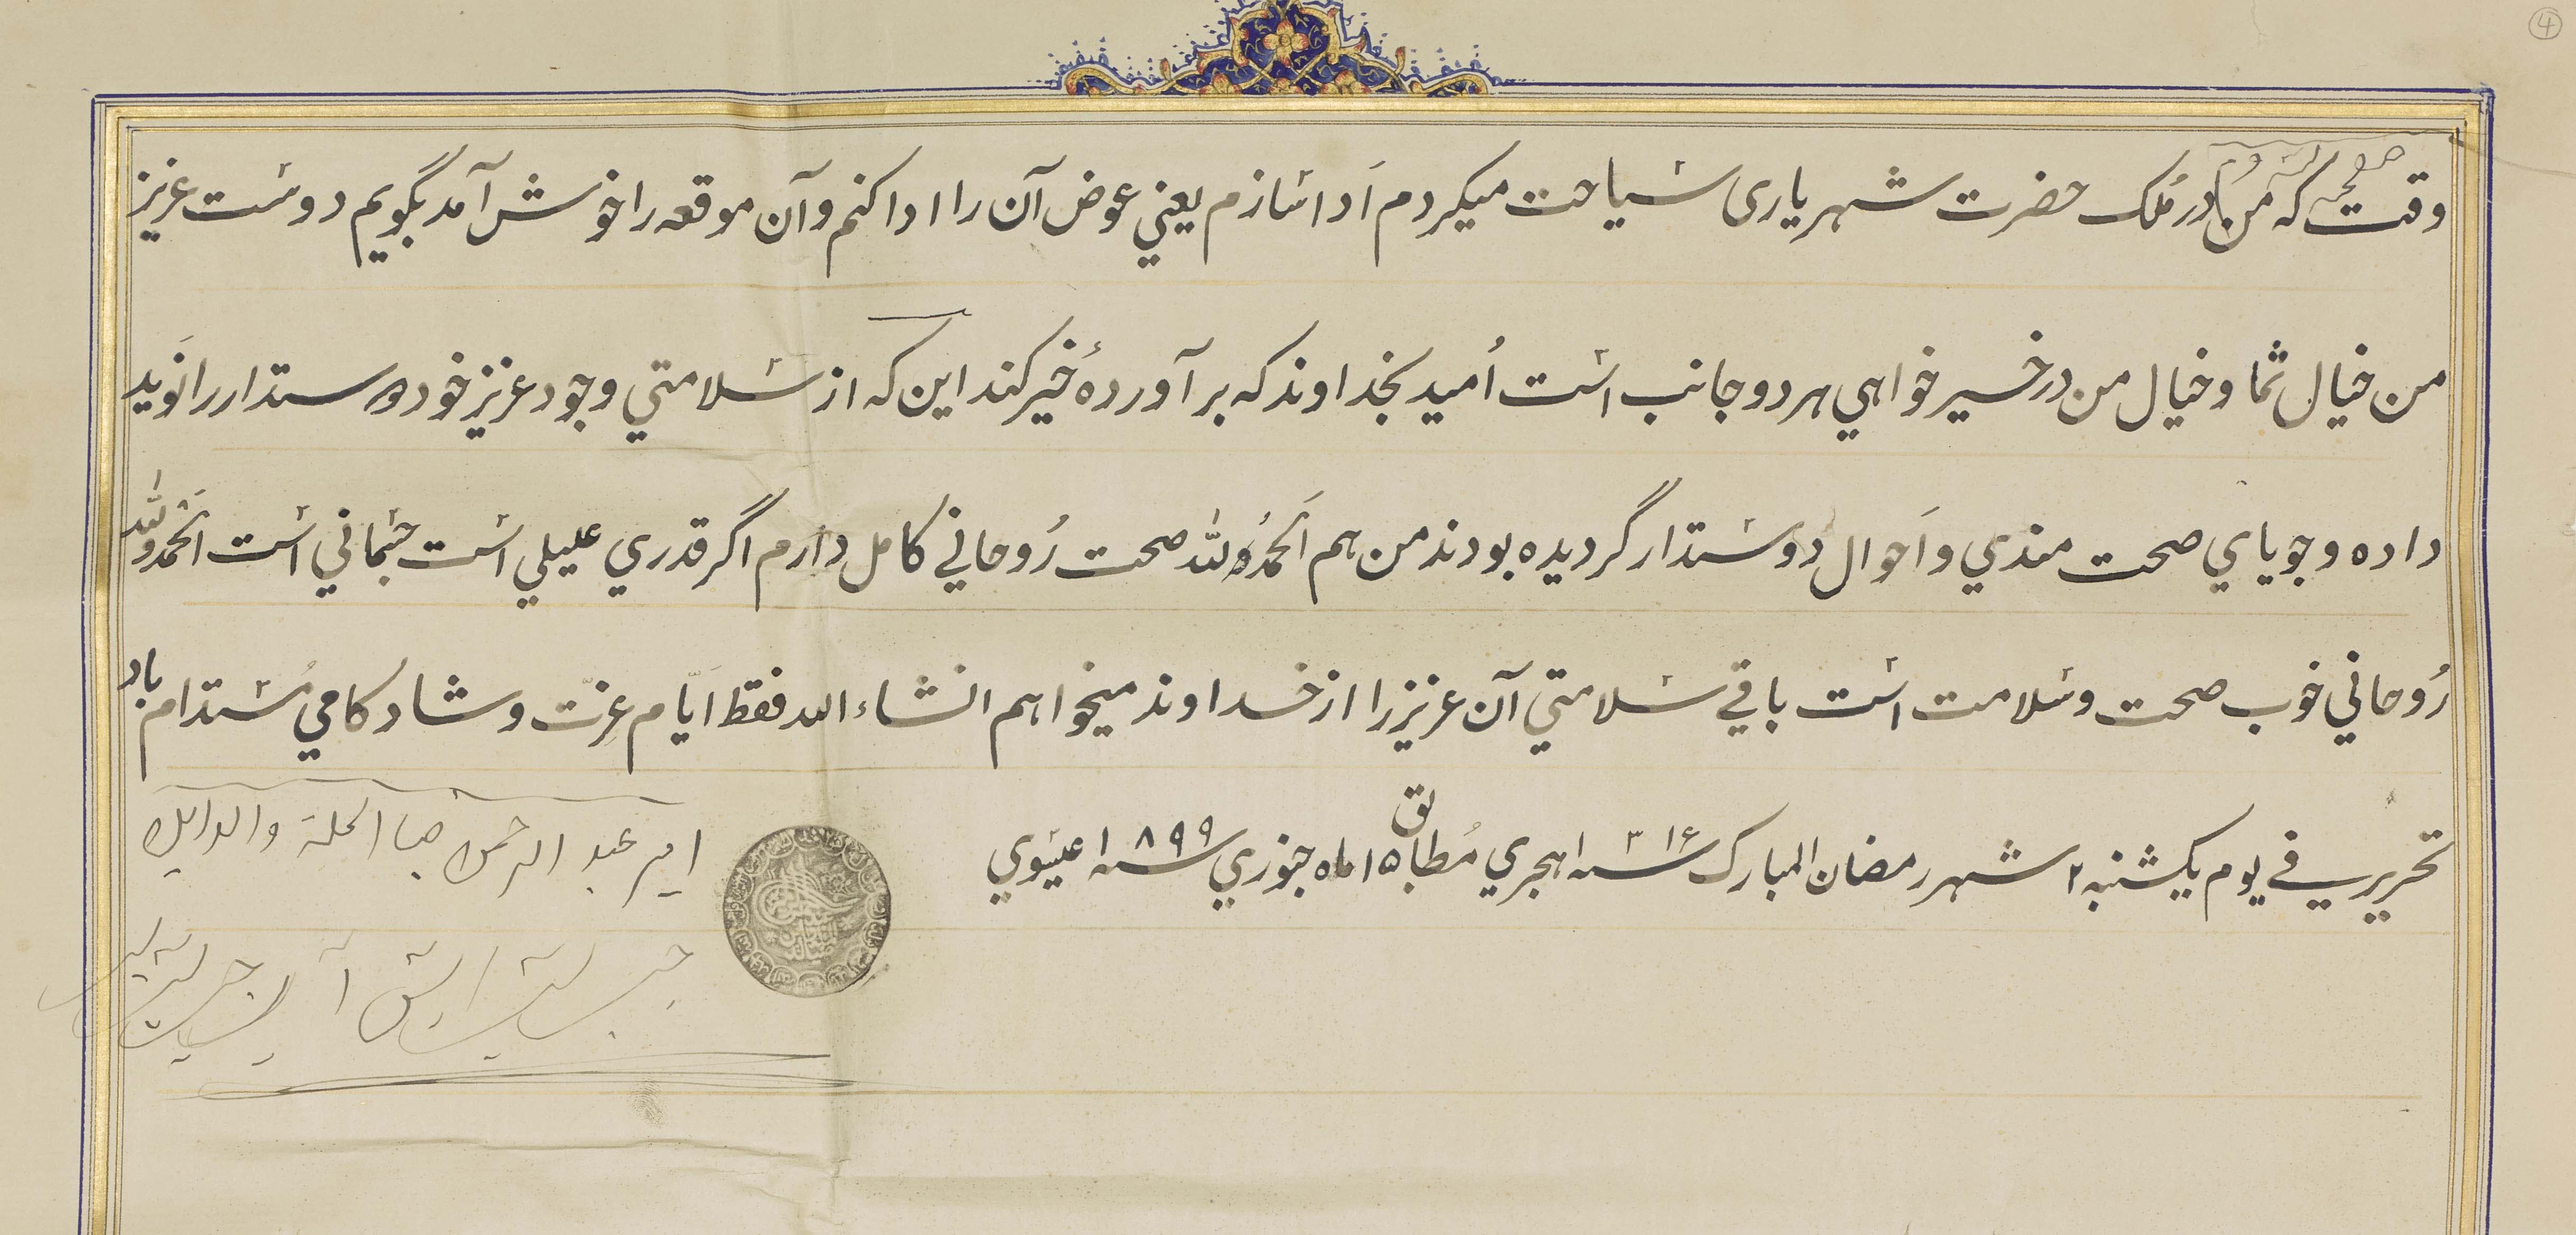 4
وقتیکه من در ملک حضرت شهریاری سیاحت میکردم اَدا سازم یعنی عوض آن را ادا کنم وآن موقعه را خوش آمد بگویم دوست عزیز
من خیال شما و خیال من در خیر خواهی هر دو جانب است اُمید بخداوند که برآوردهٔ خیر کند این که از سلامتی وجود عزیز خود دوستدار را نَوید
داده و جویای صحت مندی و اَحوال دوستدار گردیده بودند من هم اَلحمدُلله صحت رُوحانی کامل دارم اگر قدری علیلی است جسمانی است اَلحمدُلله
رُوحانی خوب صحت و سلامت است باقی سلامتی آن عزیز را از خداوند میخواهم انشاءالله فقط اَیّام عِزّت و شادکامی مُستدام باد
تحریر فی یوم یکشنبه ۲ شهر رمضان المبارک سنه ۱۳۱۶ هجری مُطابق ۱۵ ماه جنوری سنه ۱۸۹۹ عیسوی
امیر عبد الرحمن ضیا الملة والدین